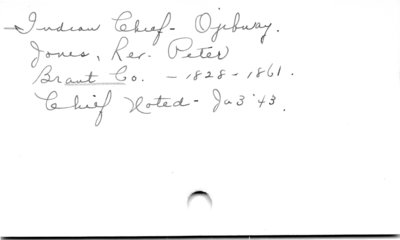 Indian Chief - Ojibway.
Jones, Rev. Peter
Brant Co. - 1828 - 1861.
Chief Noted - Ja 3 '43.